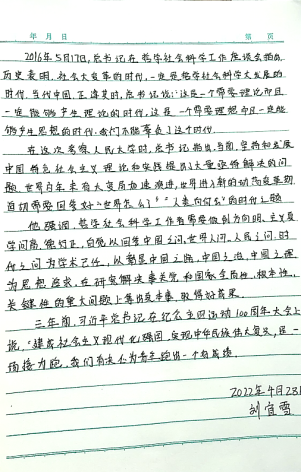 年 月 日 第 页
2016年5月17日,总书记在哲学社会科学工作座谈会指出
历史表明,社会大变革的时代,一定是哲学社会科学大发展的
时代。当代中国,正  其时,总书记说:"这是一个需要理论而且
一定能够产生理论的时代,这是一个需要思想而且一定能
够产生思想的时代,我们不能辜负了这个时代
在这次考察人民大学时,总书记指出,当前,坚持和发展
中国特色社会主义理论和实践提出了大量亟待解决的问
题,世界百年未有大变局加速演进,世界进入新的动荡变革期
迫切需要回答好"世界怎么了""人类向何去"的时代之题
他强调,哲学社会科学工作者要做到方向明、主义真
学问高、德行正,自觉以回答中国之问、世界之问、人民之问、时
代之问为学术己任,以彰显中国之路、中国之治、中国之理
为思想追求,在研究解决事关党和国家全局性、根本性、
关键性的重大问题上拿出真本事,取得好成果。
三年前,习近平总书记在纪念五四运动100周年大会上
说,"建成社会主义现代化强国,实现中华民族伟大复兴,是一
场接力跑,我们有决心为青年跑出一个好成绩
2022年4月28日
刘宜雪